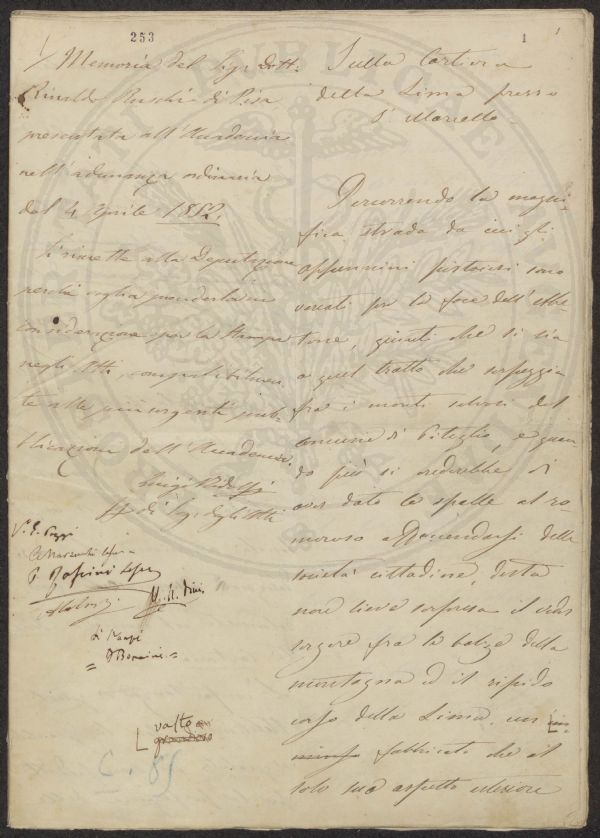 253
1
Memoria del Sig. Dott.
Rinaldo Ruschi di Pisa
presentata all'Accademia
nell'adunanza ordinaria
del 4 Aprile 1852.
Si rimette alla Deputazione
perché voglia prenderla in
considerazione per la Stampa
negli Atti, compatibilmen
te alle più urgenti pub-
blicazioni dell'Accademia.
Luigi Ridolfi
V. E. Pozzi
L vasto
grandioso
C. 85
Sulla Cartiera
della Lima presso
S. Marcello
Percorrendo la magni-
fica strada da cui gli
appennini pistoiesi sono
varcati per la foce dell'Abe-
tone, giunti che si sia
a quel tratto che serpeggia
fra i monti selvosi del
comune di Piteglio, e quan-
do più si crederebbe di
aver dato le spalle al ro-
moroso affaccendarsi delle
società cittadine, desta
non lieve sorpresa il veder
sorgere fra le balze della
montagna ed il ripido
corso della Lima, un
fabbricato che al
solo suo aspetto esteriore